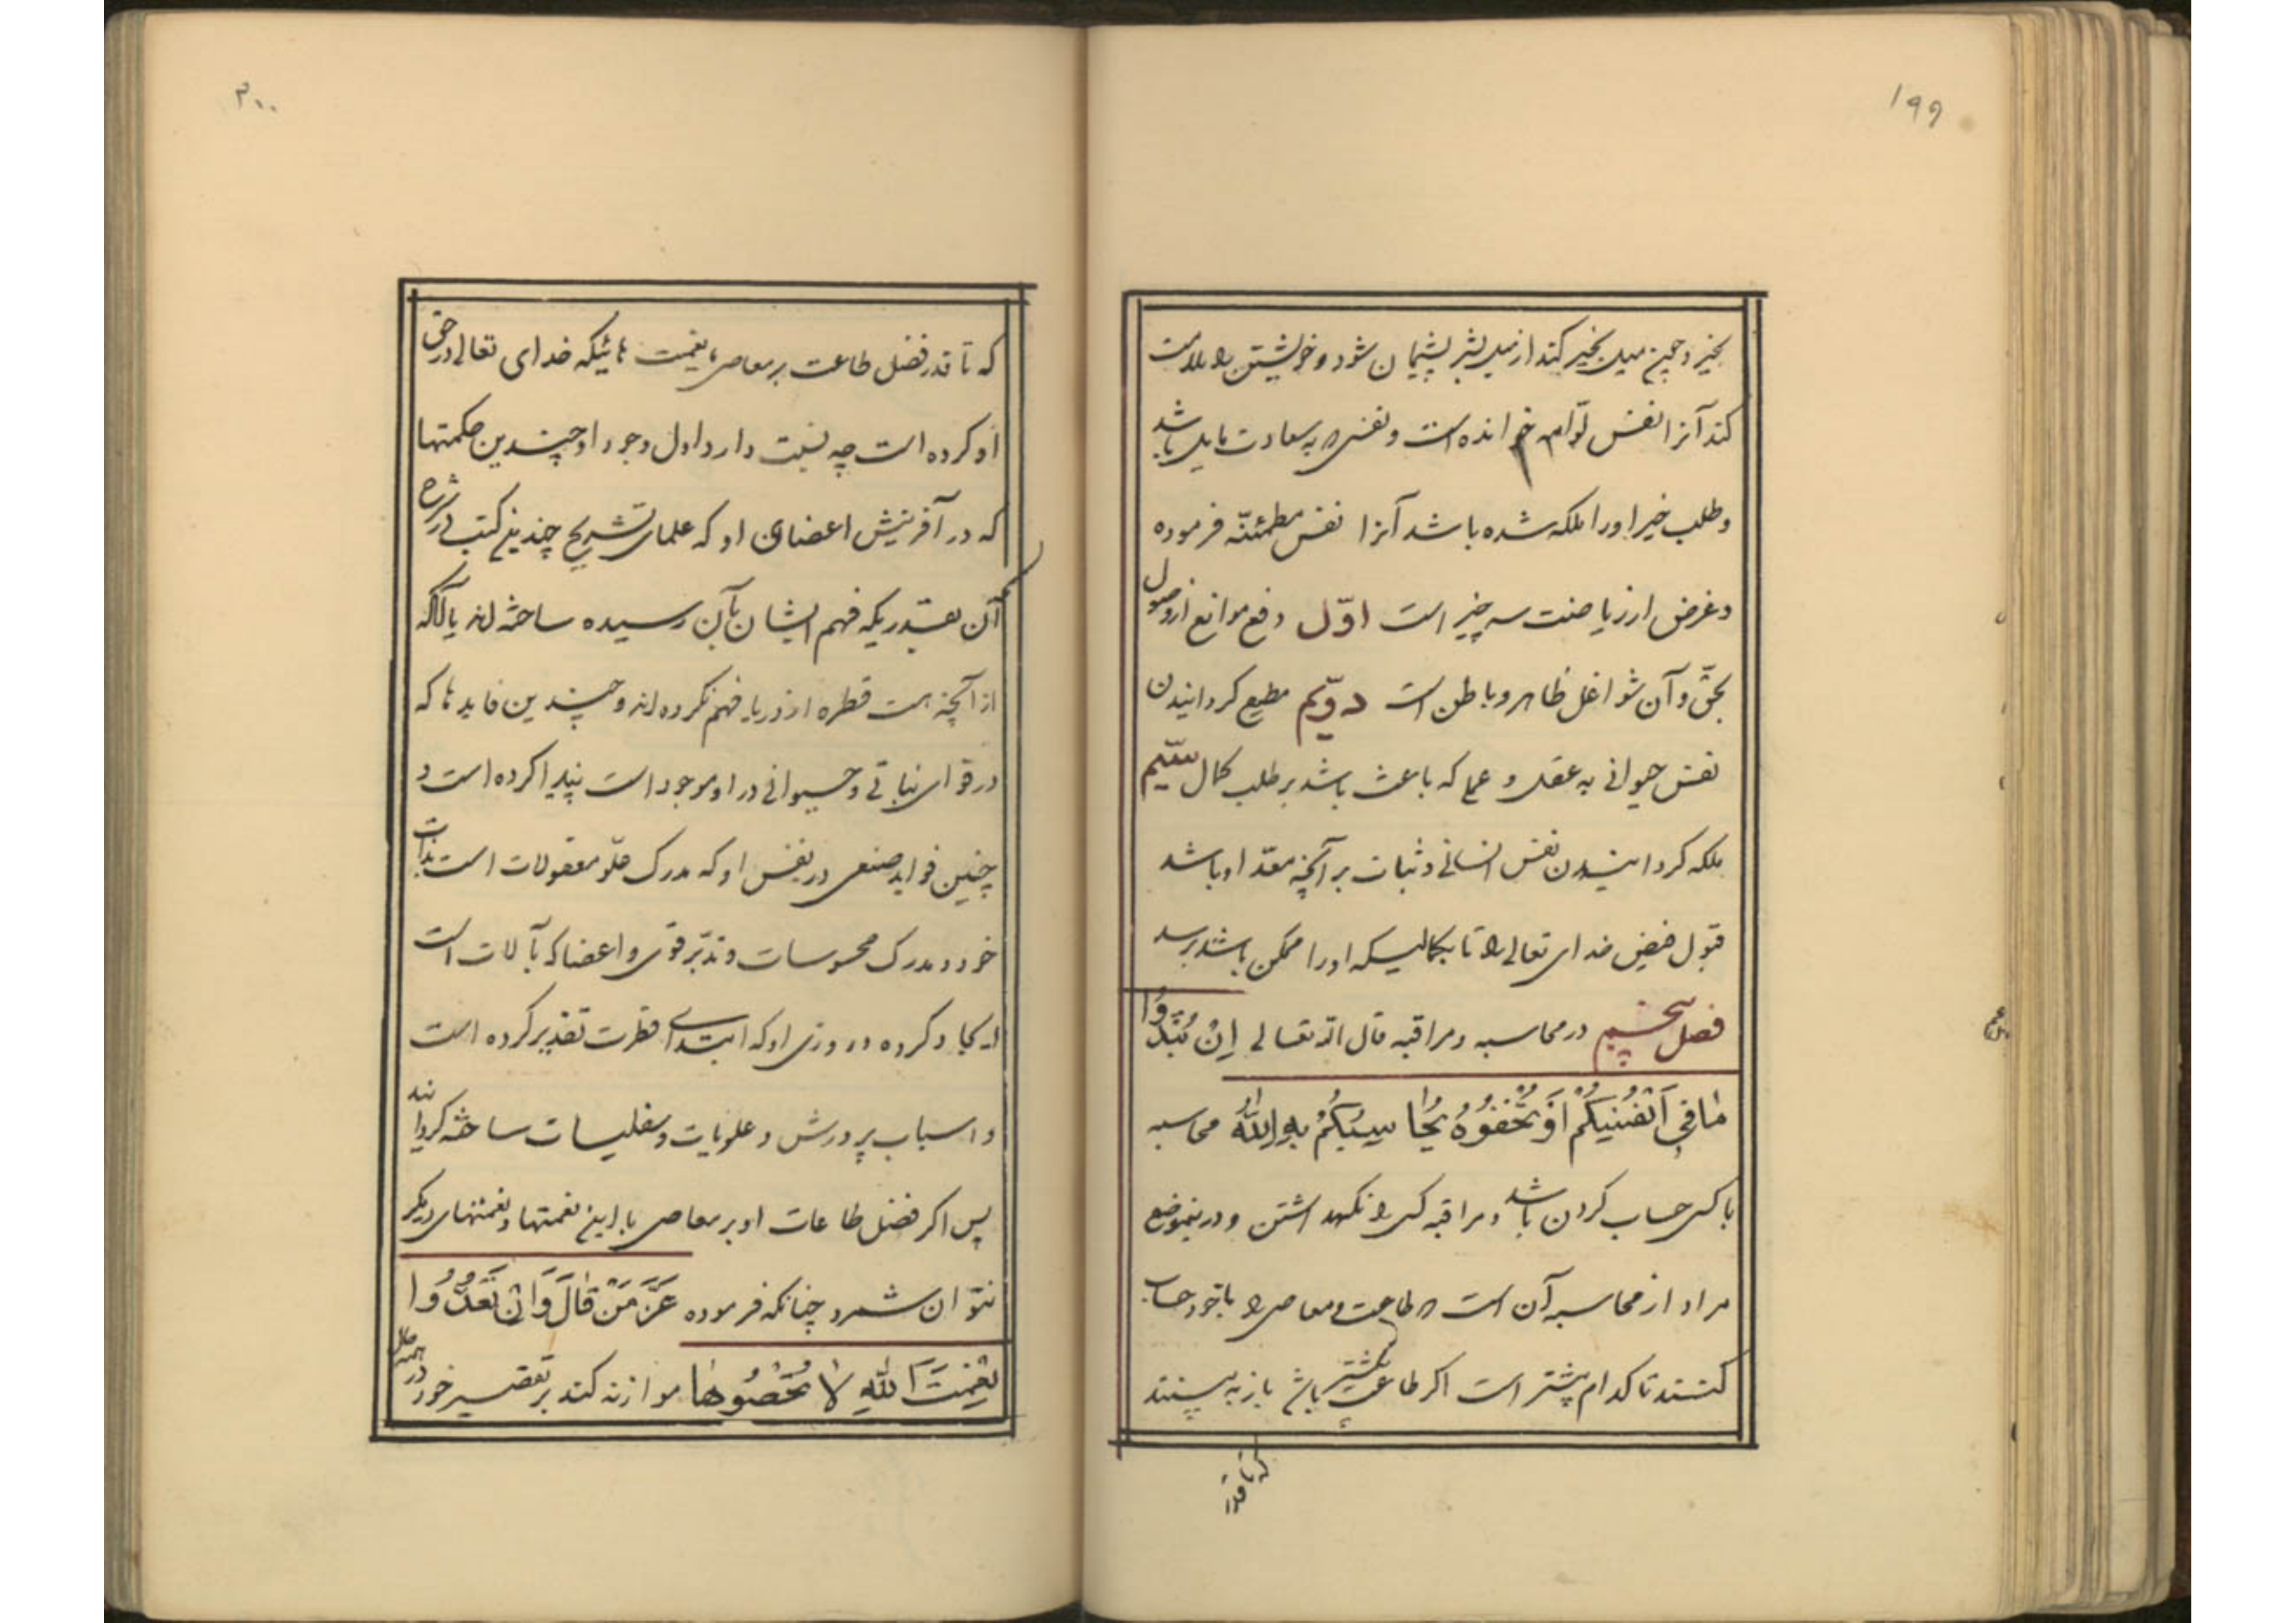 ۱۹۹
بخیر و چون میل بخیر کند از میل بشر پشیمان شود و خویشتن را ملامت
کند آنرا نفس لوّامه خوانده است و نفسی که به سعادت مایل باشد
و طلب خیر او را ملکه شده باشد آنرا نفس مطمئنّه فرموده
و غرض از ریاضت سه چیز است اوّل دفع موانع از وصول
بحقّ و آن شواغل ظاهر و باطن است دوّیم مطیع کردانیدن
نفس حیوانی به عقل و عملی که باعث باشد بر طلب کمال سیّم
ملکه کردانیدن نفس انسانی و ثبات بر آنچه معدّ او باشد
قبول فیض خدای تعالی را تا بکمالیکه او را ممکن باشد برسد
فصل پنجم در محاسبه و مراقبه قال الله تعالی اِنْ تُبْدُوا
مٰا فی اَنْفُسِکُمْ اَوْ تُخْفُوهُ یُحٰاسِبْکُمْ بِهِ اللّٰهُ محاسبه
با کسی حساب کردن باشد و مراقبه کسی را نکهداشتن و در ینموضع
مراد از محاسبه آن است که طاعت و معاصی را با خود حساب
کنند تا کدام پیشتر است اکر طاعت بیشتر باشد باز به بینند
که تا قدر
۲۰۰
که تا قدر فضل طاعت بر معاصی با نعمت هائیکه خدای تعالی در حق
او کرده است چه نسبت دارد اول وجود او چندین حکمتها
که در آفرینش اعضای او که علمای تشریح چندین کتب در شرح
آن بقدریکه فهم ایشان بآن رسیده ساخته اند با آنکه
از آنچه هست قطره از دریا فهم نکرده اند و چندین فایدها که
در قوای نباتی و حیوانی در او موجود است پیدا کرده است و
چنین فواید صنعی در نفس او که مدرک معقولات است بذات
خود و مدرک محسوسات و تدبّر قوی و اعضا که بآلات است
ایجاد کرده و روزی او که ابتدای فطرت تقدیر کرده است
و اسباب پرورش و علویات و سفلیات ساخته کردانید
پس اکر فضل طاعات او بر معاصی با این نعمتها و نعمتهای دیکر
نتوان شمرد چنانکه فرموده عَزَّ مَنْ قٰالَ وَاِنْ تَعُدُّوا
نِعْمَتَ اللّٰهِ لاٰ تُحْصُوهٰا موازنه کند بر تقصیر خود در همه حال